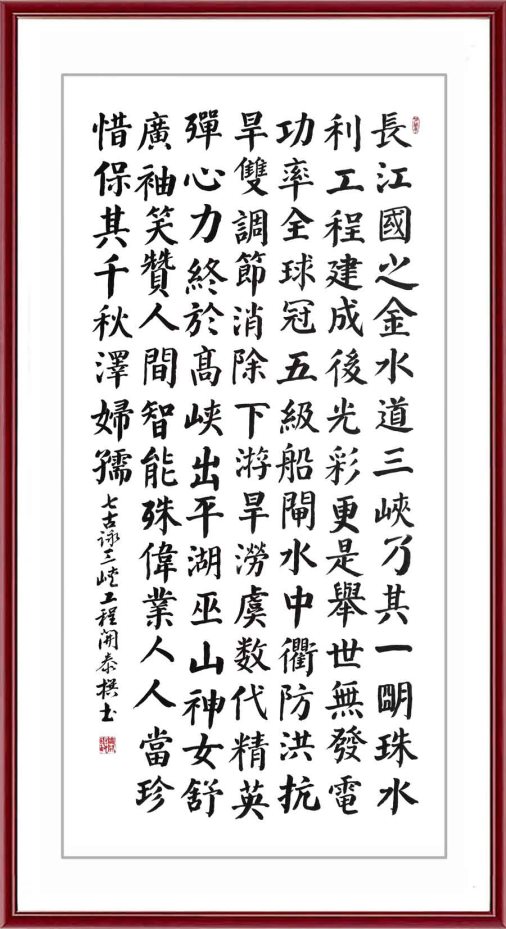 長江國之金水道三峽乃其一明珠水
利工程建成後光彩更是舉世無發電
功率全球冠五級船閘水中衢防洪抗
旱雙調節消除下游旱澇虞数代精英
殫心力終於高峡出平湖巫山神女舒
廣袖笑贊人間智能殊偉業人人當珍
惜保其千秋澤婦孺
七古詠三峡工程開泰撰书